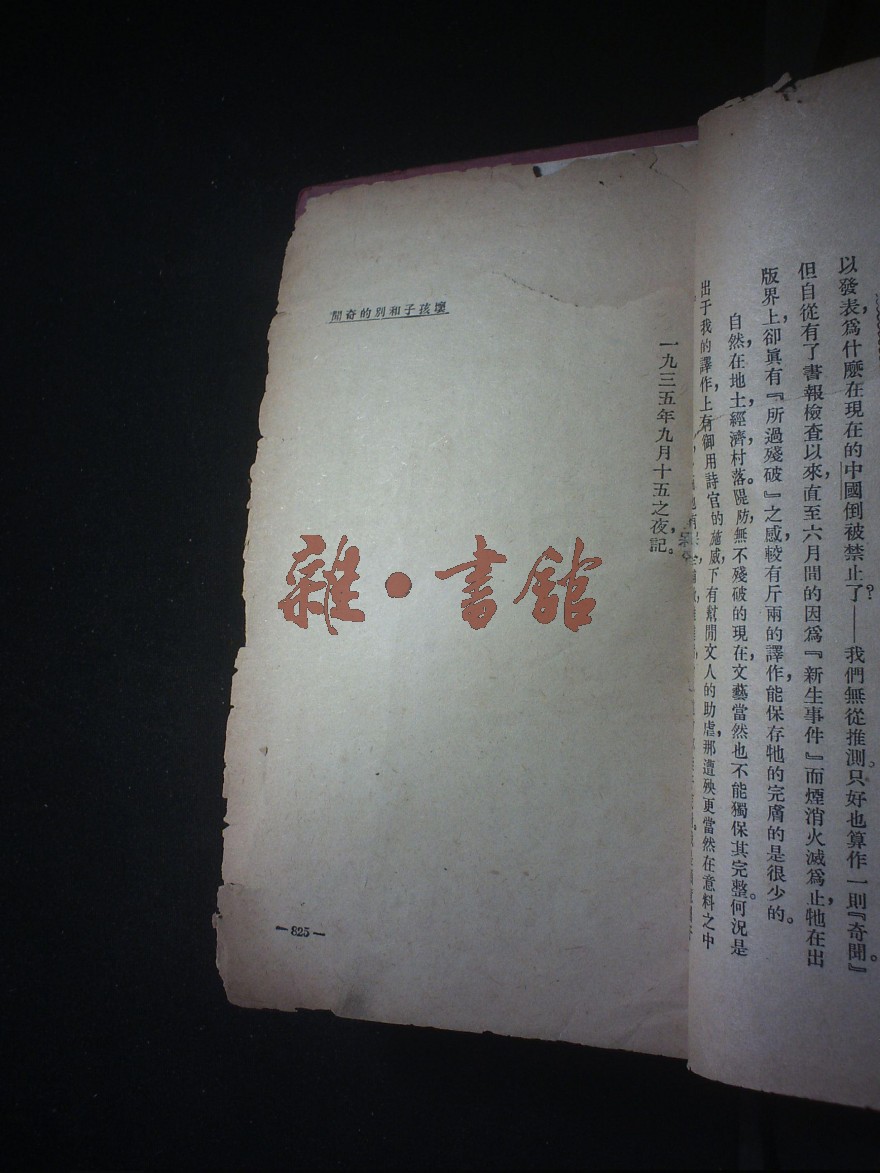 以發表，爲什麼在現在的中國倒被禁止了？——我們無從推測。只好也算作一則『奇聞』。
但自從有了書報檢查以來，直至六月間的因爲『新生事件』而煙消火滅爲止，牠在出
版界上，卻眞有『所過殘破』之感，較有斤兩的譯作，能保存牠的完膚的是很少的。
自然，在地土，經濟，村落，隄防，無不殘破的現在，文藝當然也不能獨保其完整。何況是
出于我的譯作，上有御用詩官的施威，下有幫閒文人的助虐，那遭殃更當然在意料之中
一九三五年九月十五之夜，記。
聞奇的別和子孩壞
—825—
雜·書館